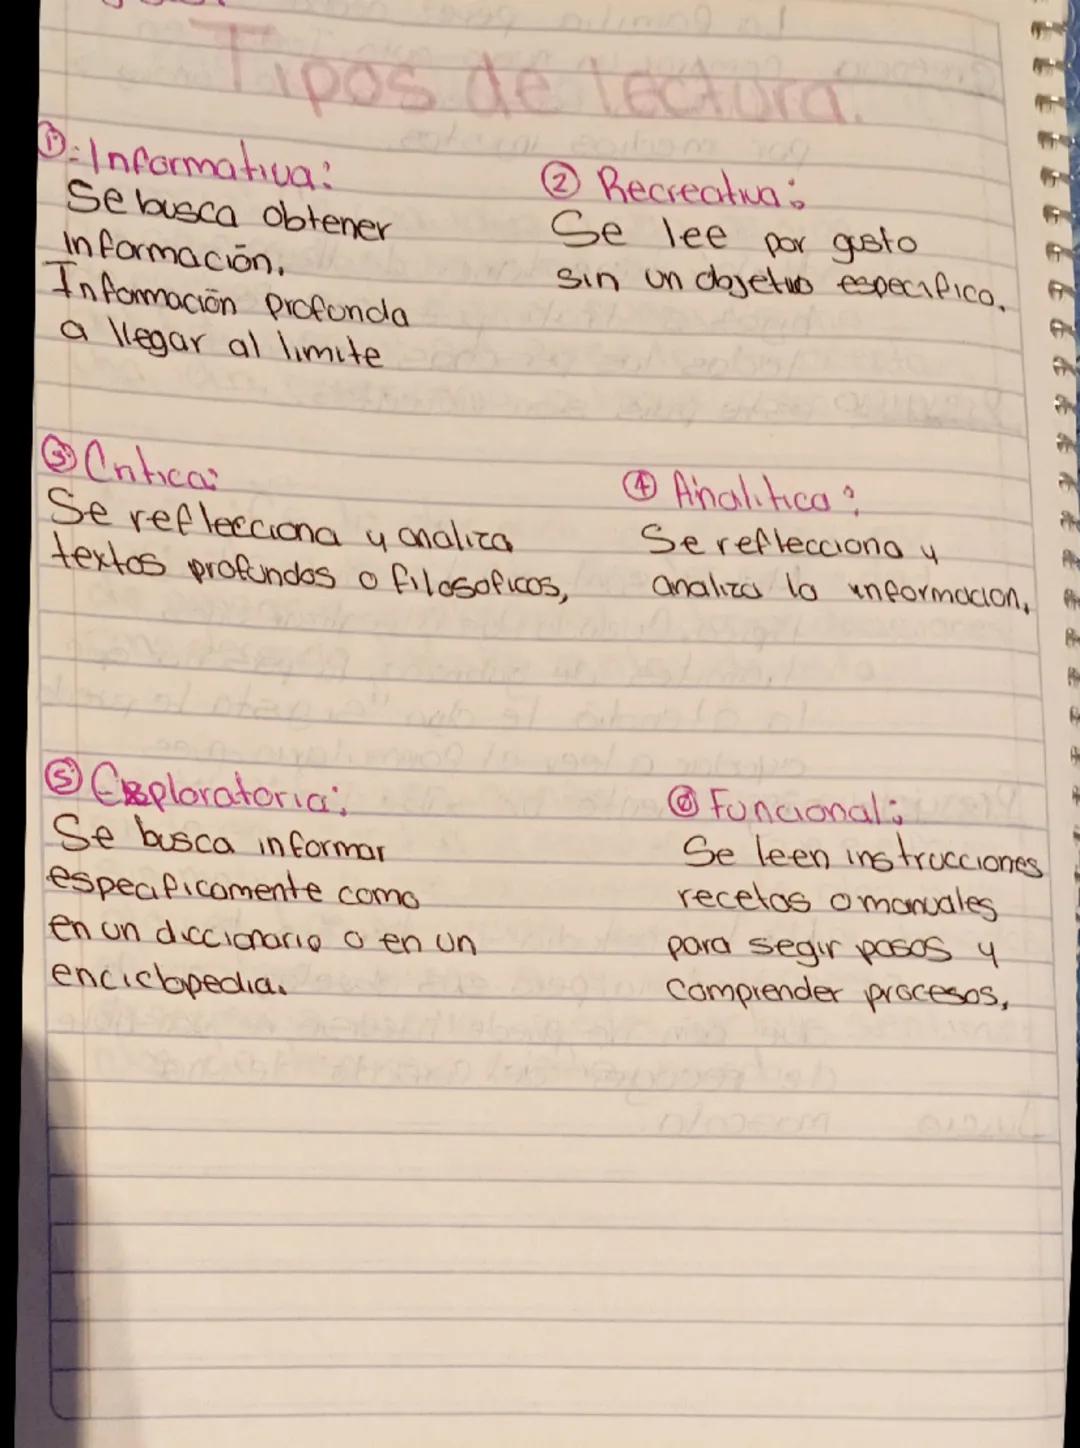 Tipos de lectura.
①:Informativa:
Se busca obtener
Información.
Información profunda
a llegar al limite
② Recreativa:
Se lee por gusto
sin un objetivo especifico.
③ Critica:
Se reflecciona y analiza
textos profundos o filosoficos,
④ Analitica:
Se reflecciona y
analiza la informacion,
⑤ Exploratoria:
Se busca informar
especificamente como
en un diccionario o en un
enciclopedia.
⑥ Funcional:
Se leen instrucciones
recetas o manuales
para segir pasos y
comprender procesos,